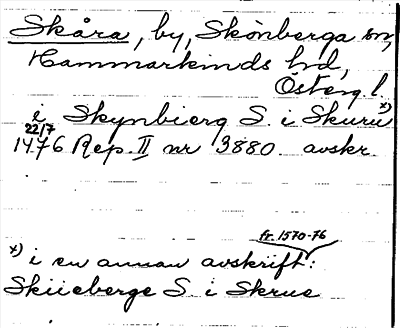 Skåra, by, Skönberga sn,
Hammarkinds hd,
Österg. l
i Skynbierg S. i Skuru x)
22/7
1476 Rep. II nr 3880. avskr.
fr. 1570-76
x) i en annan avskrift:
Skiieberge S. i Skrue